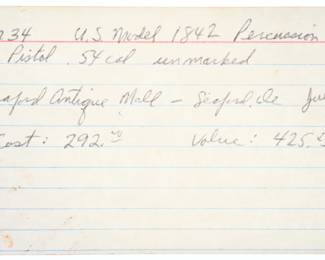 234 U.S. Model 1842 Percussion
Pistol .54 cal unmarked
Antique Mall – Seaford, De
Cost: 292.00 Value: 425.